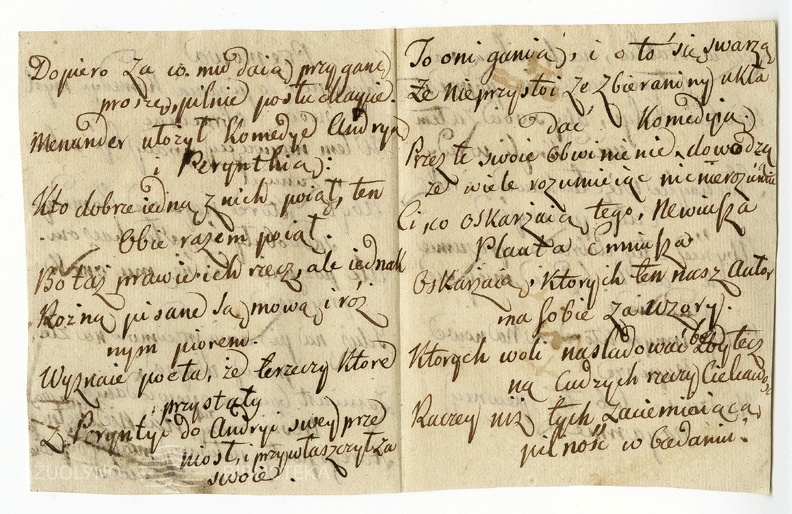 Dopiero za co mu daią przyganę
proszę, pilnie posłuchaycie.
Menander ułożył Komedye Andryą
i Perynthią:
Kto dobrze iedną z nich poiął, ten
Obie razem poiął.
Bo taż prawie ich rzecz, ale iednak
Rożną pisane są mową i róż
nym piorem.
Wyznaie poeta, że te rzeczy które
przystały
z Peryntyi do Andryi swey prze
niosł, i przywłaszczył za
swoie.
To oni ganią, i o to się swarzą
Że nieprzystoi ze zbieraniny ukła
dać Komedyią.
Przez te swoie obwinienie dowodzą
że wiele rozumieiąc nic nierozumie
Ci, co oskarżaią tego, Newiusza
Plauta Enniusza
Oskarżaią, ktorych ten nasz Autor
ma sobie za wzory.
Ktorych woli nasladować
na cudzych rzeczy
Raczey niż tych zaciemiaiącą,
pilność w badaniu.